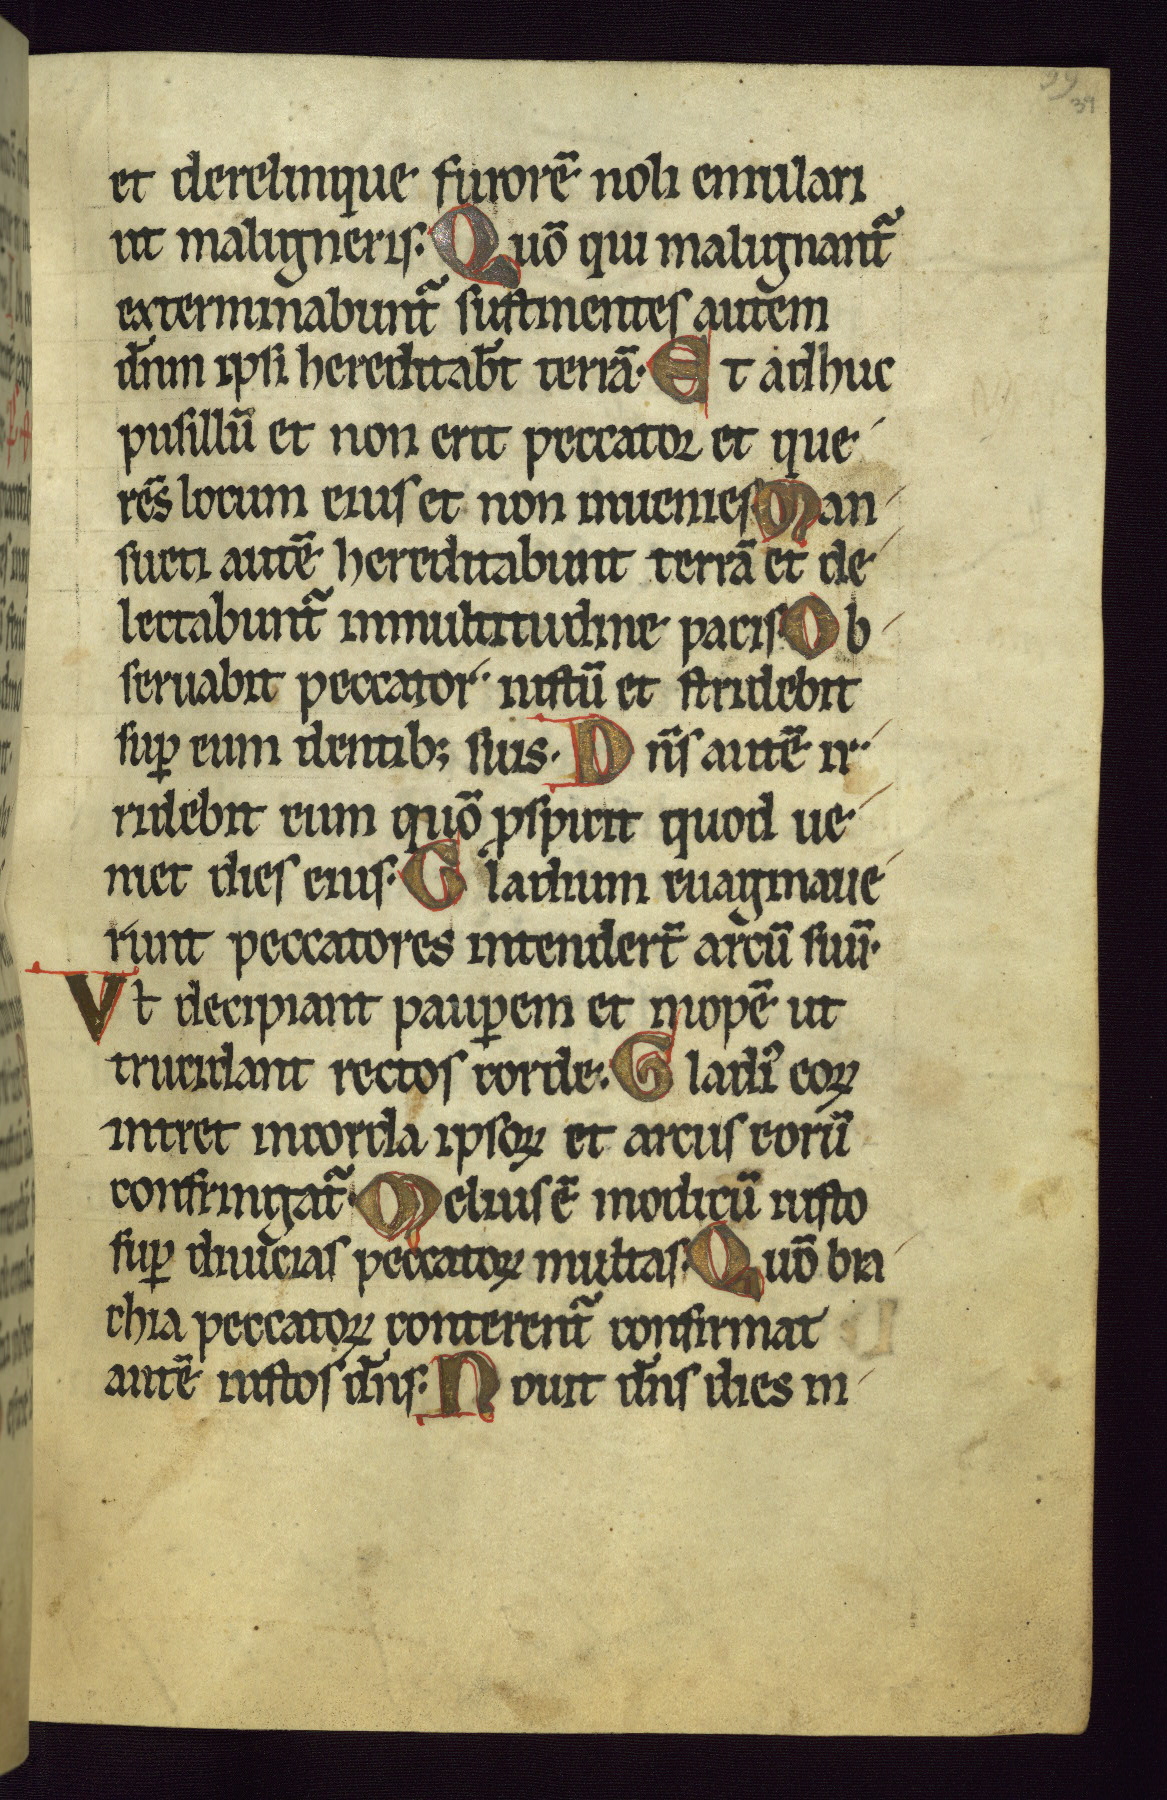 39
39
et derelinque furorē noli emulari
ut maligneris. Quō qui malignant᷑
exterminabunt᷑ sustinentes autem
dn̄m ipsi hereditab̄t terrā. Et adhuc
pusillū et non erit peccator et que
rēs locum eius et non inuenies Man
sueti autē hereditabunt terrā et de
lectabunt᷑ inmultitudine pacis Ob
seruabit peccator iustū et stridebit
suꝑ eum dentib; suis. Dn̄s autē ir
ridebit eum quō ꝓspicit quod ue
niet dies eius. Gladium euaginaue
runt peccatores intendert̄ arcū suū.
Vt decipiant pauꝑem et inopē ut
trucidant rectos corde. Gladi᾽ eoꝝ
intret incorda ipsoꝝ et arcus eorū
confringat᷑. Melius ē modicū iusto
suꝑ diuicias peccatoꝝ multas. Quō bra
chia peccatoꝝ conterent᷑ confirmat
autē iustos dn̄s. Nouit dn̄s dies in